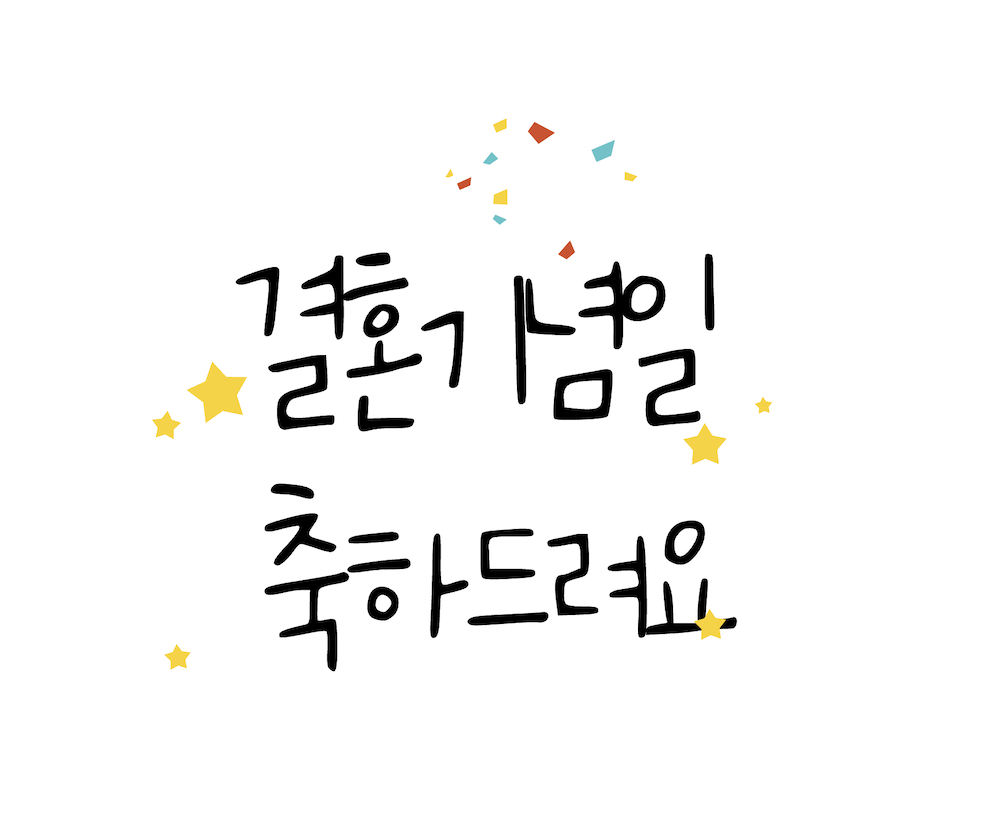 결혼기념일
축하드려요